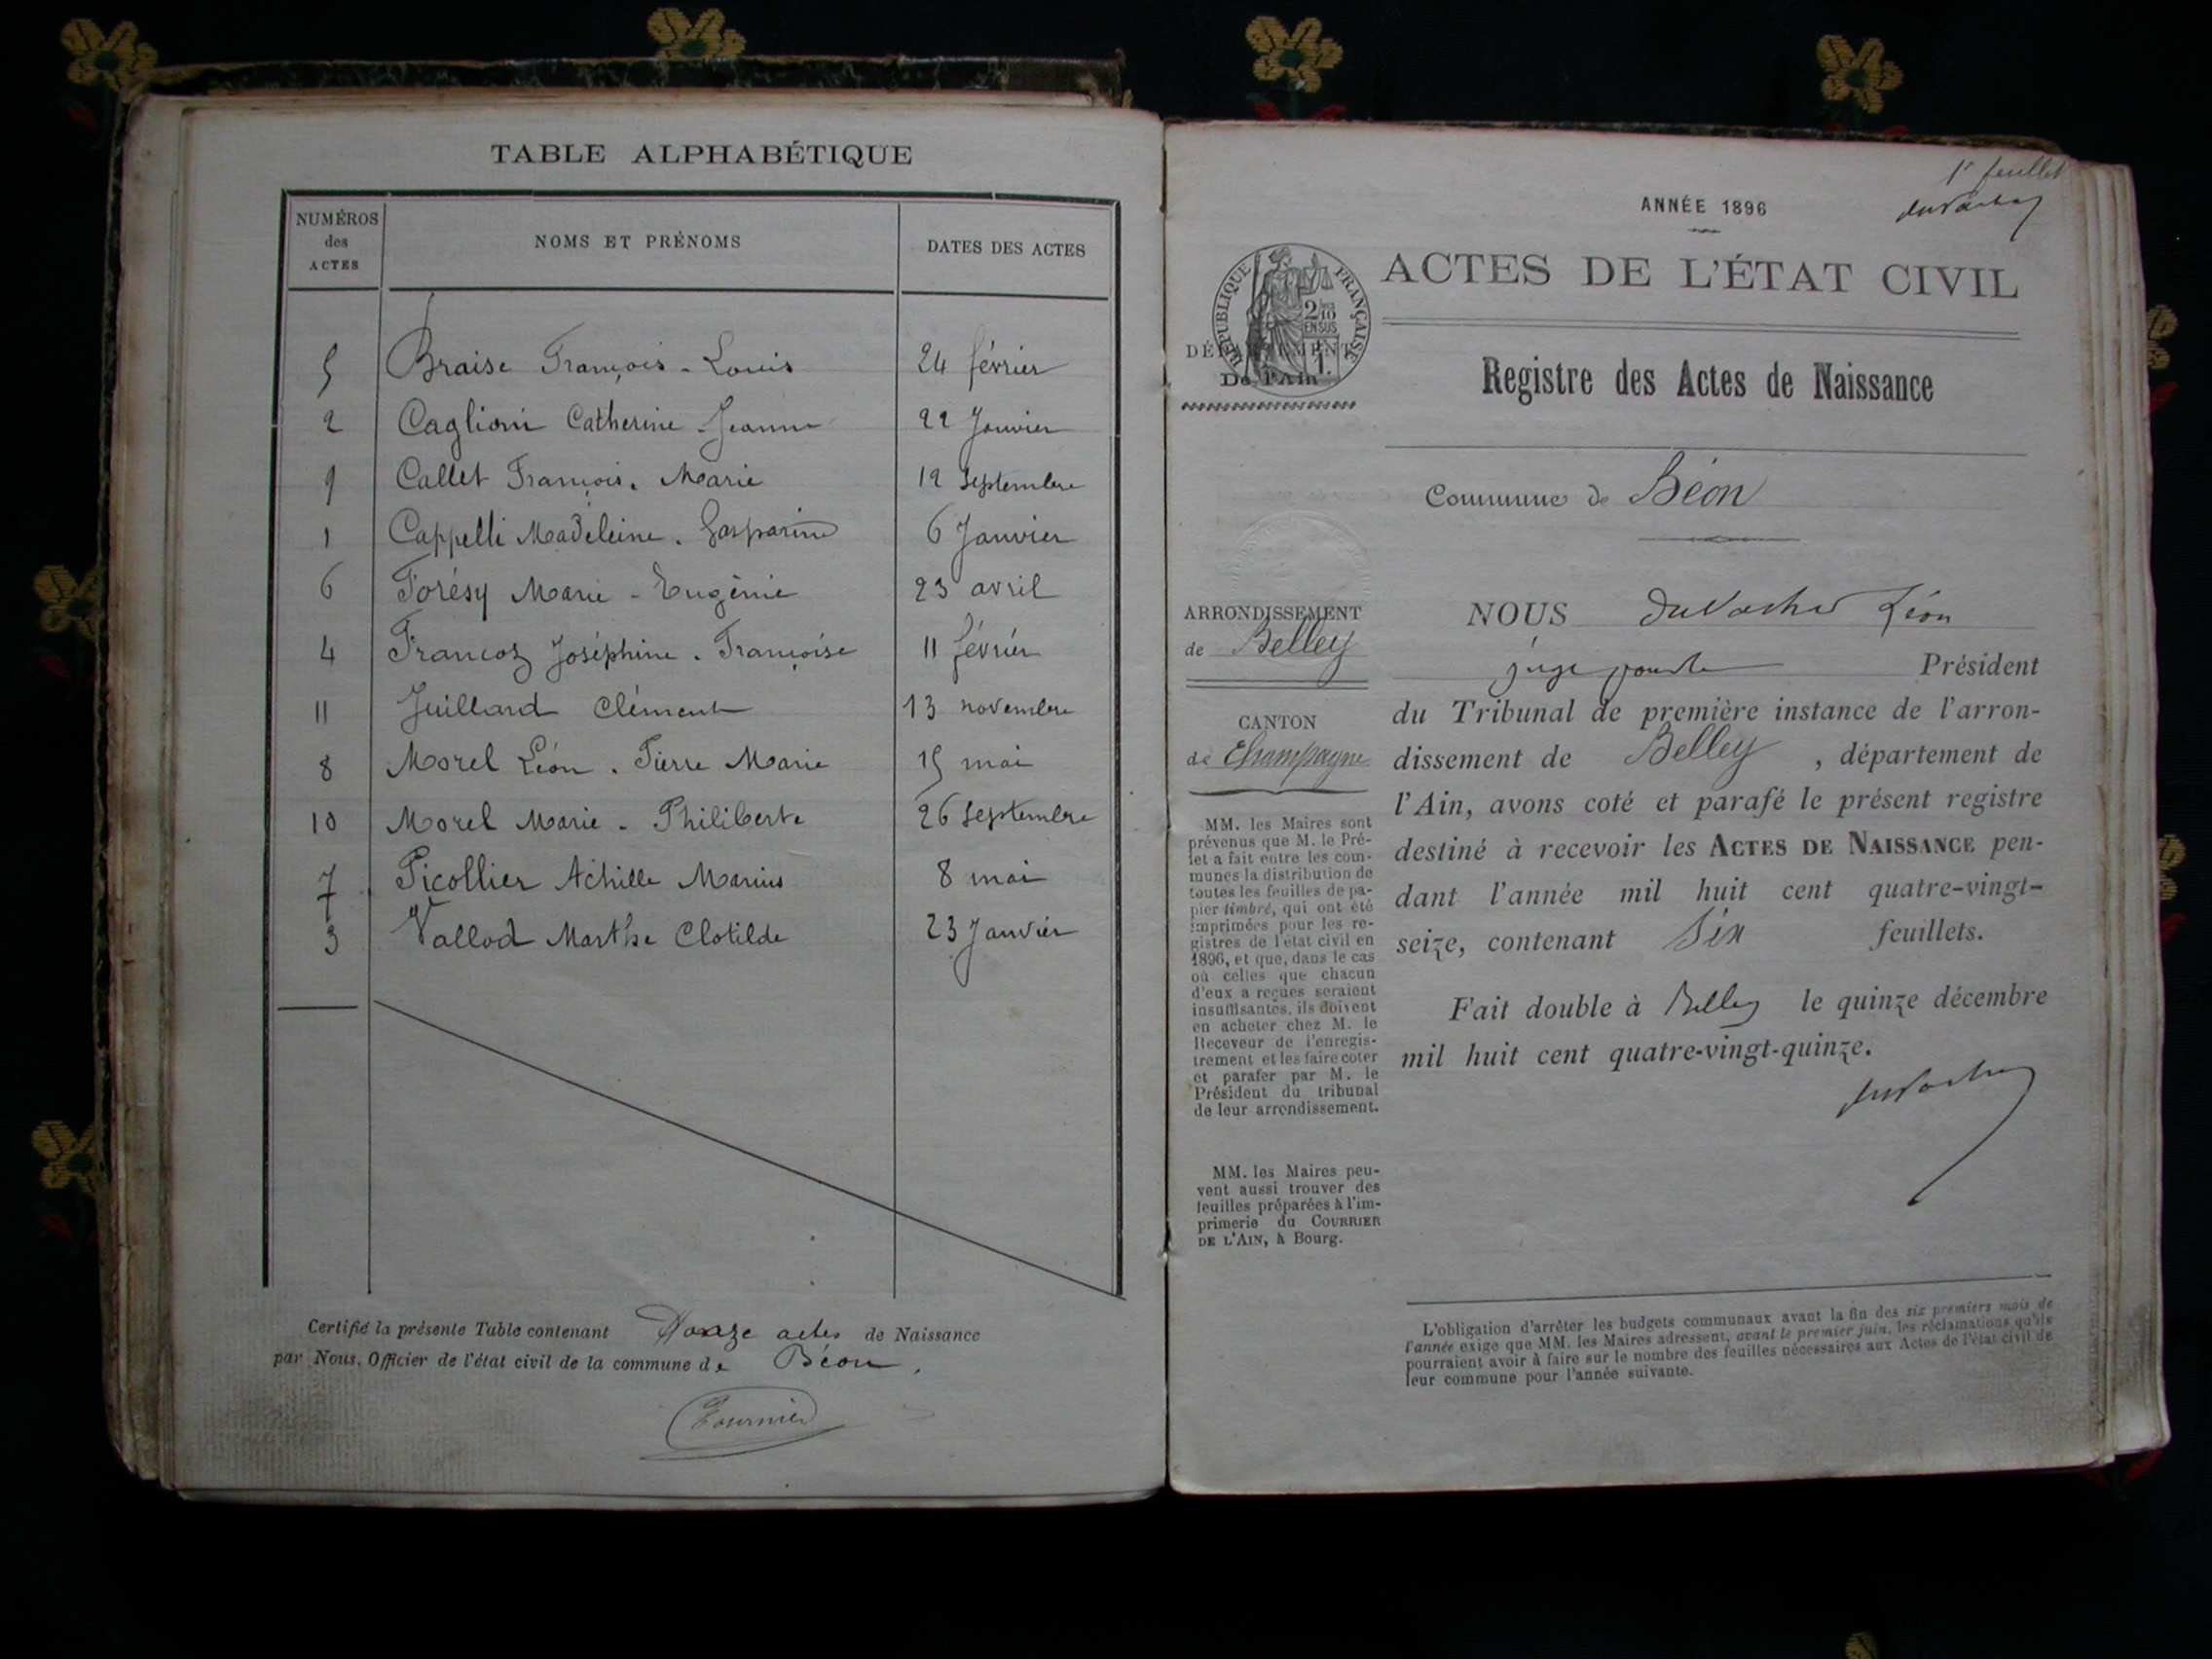 TABLE ALPHABÉTIQUE
NUMÉROS des ACTES
NOMS ET PRÉNOMS
DATES DES ACTES
5 Braise François - Louis 24 février
2 Caglioni Catherine - Jeanne 22 Janvier
9 Callet François. Marie 12 Septembre
1 Cappelli Madeleine. Gasparine 6 Janvier
6 Forésy Marie - Eugénie 23 avril
4 Francoz Joséphine. Françoise 11 février
11 Juillard Clément 13 novembre
8 Morel Léon. Pierre Marie 15 mai
10 Morel Marie - Philiberte 26 Septembre
7 Picollier Achille Marius 8 mai
3 Vallod Marthe Clotilde 23 Janvier
Certifié la présente Table contenant Honze actes de Naissance
par Nous, Officier de l'état civil de la commune de Béon.
Fournier
1r feuillet
ANNÉE 1896
RÉPUBLIQUE FRANÇAISE
2/10
EN SUS
ACTES DE L'ÉTAT CIVIL
DÉPARTEMENT
De l'Ain
Registre des Actes de Naissance
Commune de Béon
ARRONDISSEMENT
de Belley
CANTON
de Champagne
MM. les Maires sont
prévenus que M. le Pré-
fet a fait entre les com-
munes la distribution de
toutes les feuilles de pa-
pier timbré, qui ont été
imprimées pour les re-
gistres de l'état civil en
1896, et que, dans le cas
où celles que chacun
d'eux a reçues seraient
insuffisantes, ils doivent
en acheter chez M. le
Receveur de l'enregis-
trement et les faire coter
et parafer par M. le
Président du tribunal
de leur arrondissement.
MM. les Maires peu-
vent aussi trouver des
feuilles préparées à l'im-
primerie du COURRIER
DE L'AIN, à Bourg.
NOUS Léon
juge Président
du Tribunal de première instance de l'arron-
dissement de Belley, département de
l'Ain, avons coté et parafé le présent registre
destiné à recevoir les ACTES DE NAISSANCE pen-
dant l'année mil huit cent quatre-vingt-
seize, contenant Six feuillets.
Fait double à Belley le quinze décembre
mil huit cent quatre-vingt-quinze.
L'obligation d'arrêter les budgets communaux avant la fin des six premiers mois de
l'année exige que MM. les Maires adressent, avant le premier juin, les réclamations qu'ils
pourraient avoir à faire sur le nombre des feuilles nécessaires aux Actes de l'état civil de
leur commune pour l'année suivante.